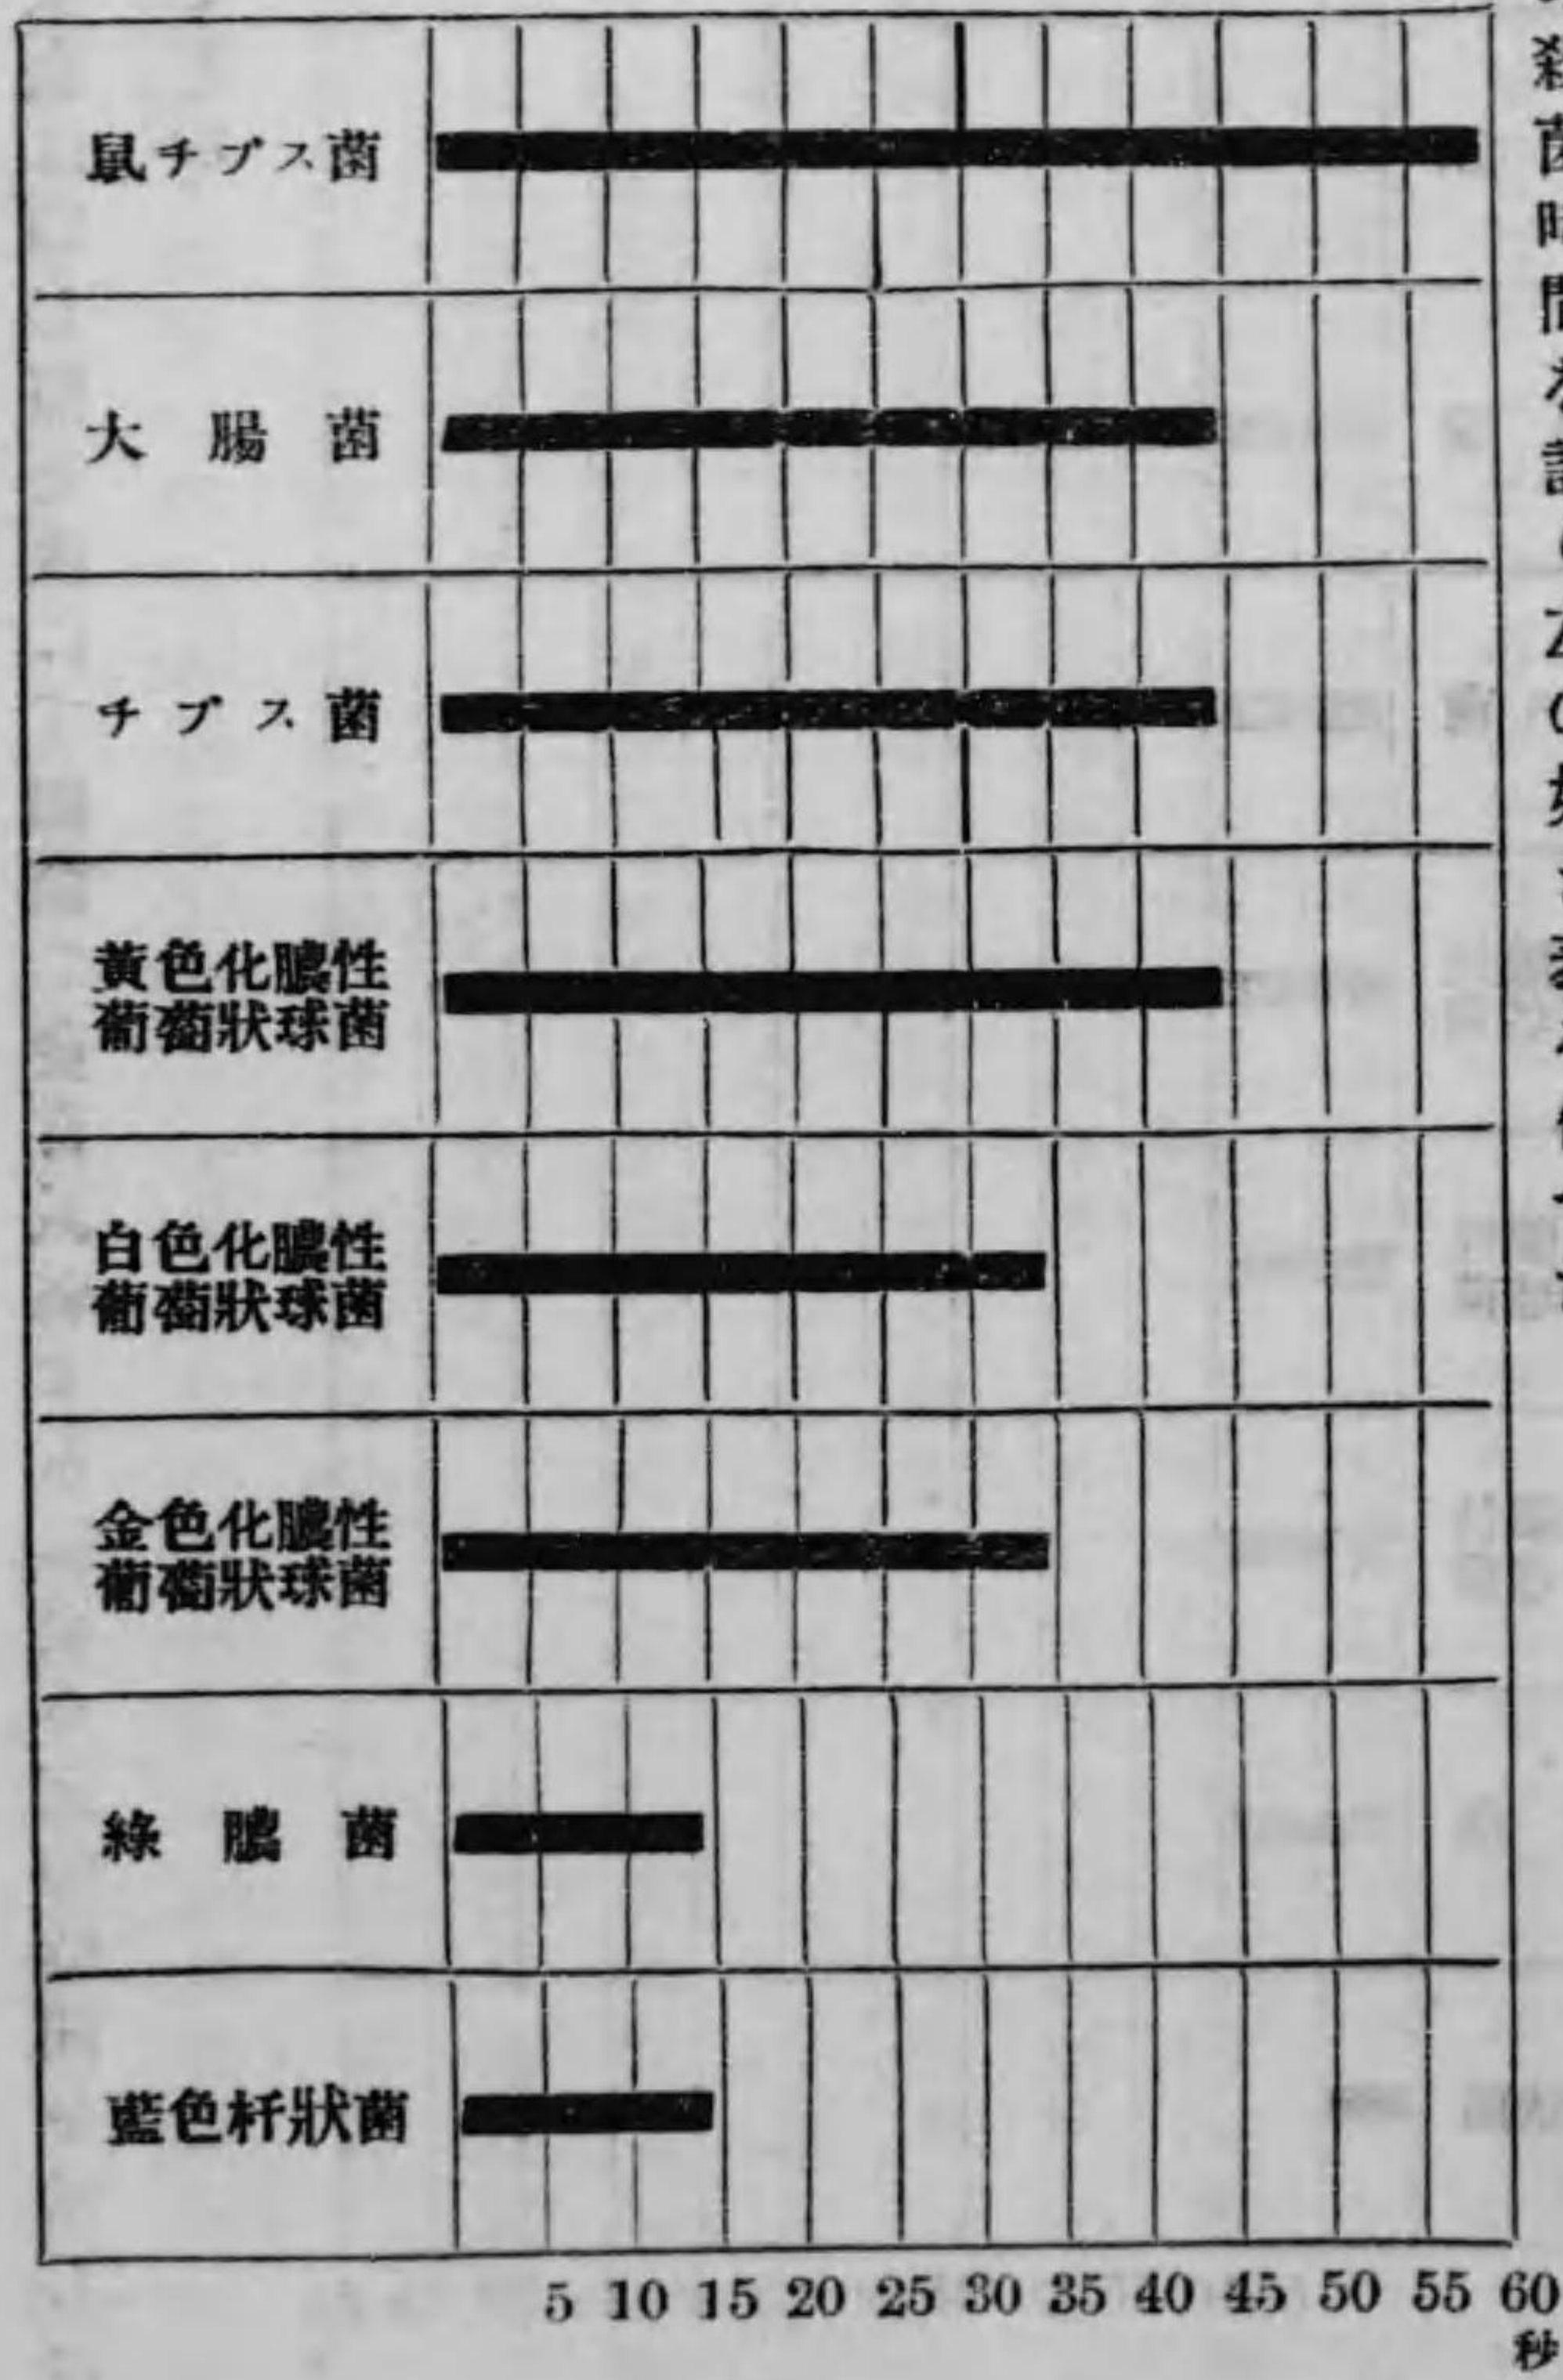 鼠チブス菌
大腸菌
チブス菌
黃色化膿性
葡萄狀球菌
白色化膿性
葡萄狀球菌
金色化膿性
葡萄狀球菌
綠膿菌
藍色杆狀菌
5 10 15 20 25 30 35 40 45 50 55 60
秒